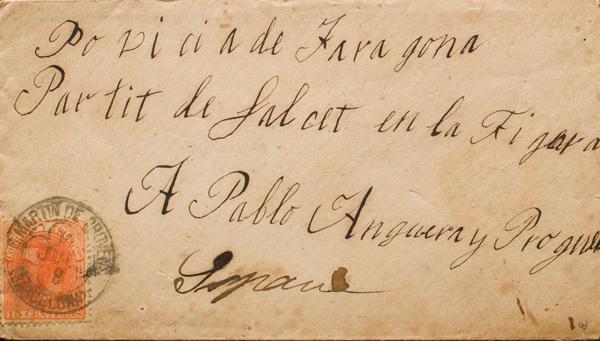 Po vi ci a de Tara gona
Partit de Salcet en la Figara
A Pablo Anguera y Progue
Espane
MARTIN DE
JUN
8
BARCELONA
15 CENTIMOS